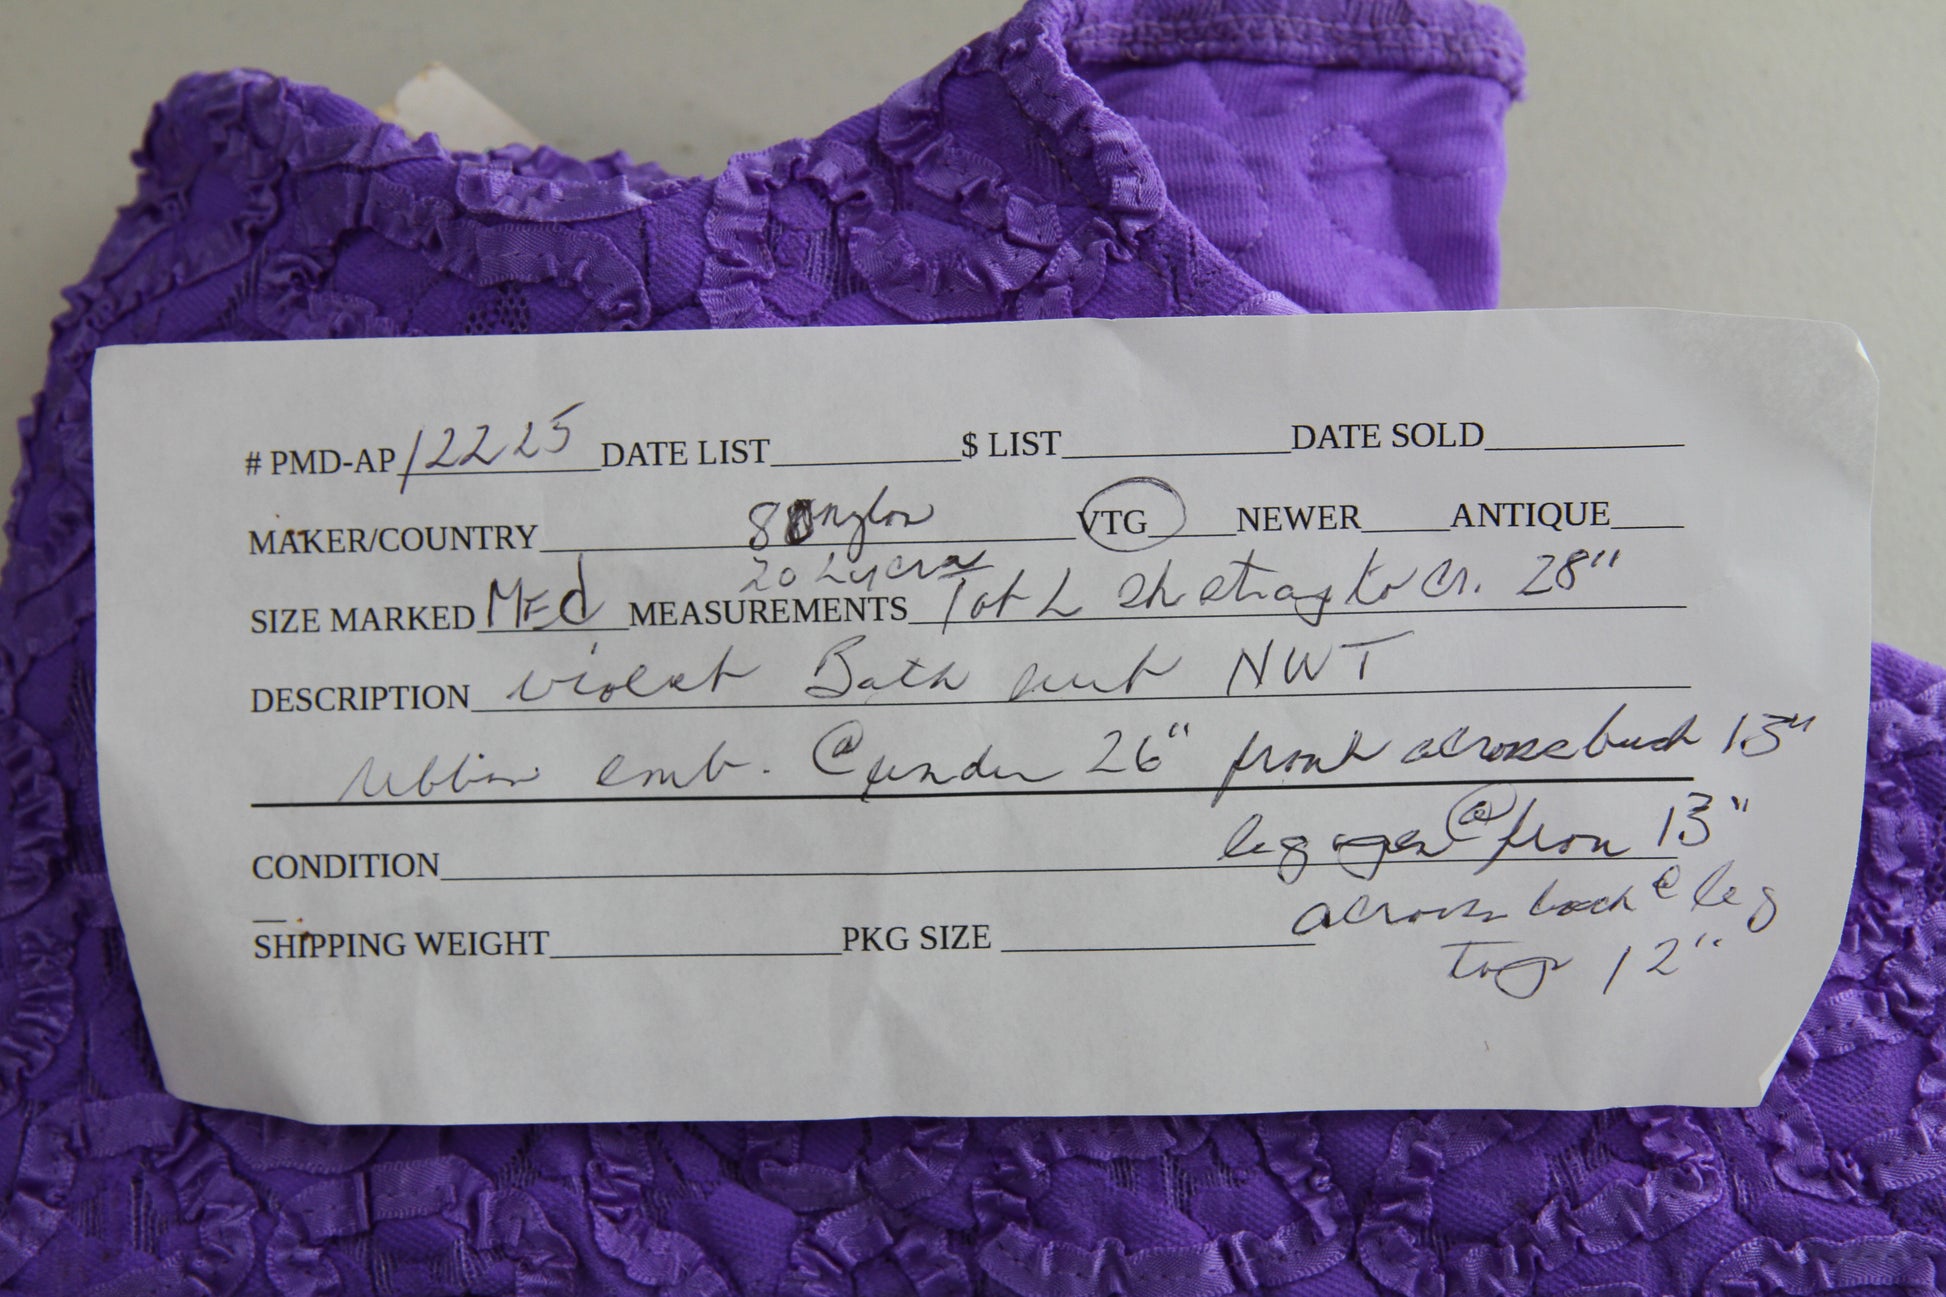 # PMD-AP 12225 DATE LIST $ LIST DATE SOLD
MAKER/COUNTRY 80 nylon VTG NEWER ANTIQUE
20 Lycra
SIZE MARKED MEd MEASUREMENTS Tot L sh strap to cr. 28"
DESCRIPTION violet Bath suit NWT
ribbon emb. @ under 26" front across bust 15"
leg open @ from 13"
CONDITION
across back @ leg
SHIPPING WEIGHT PKG SIZE
top 12"